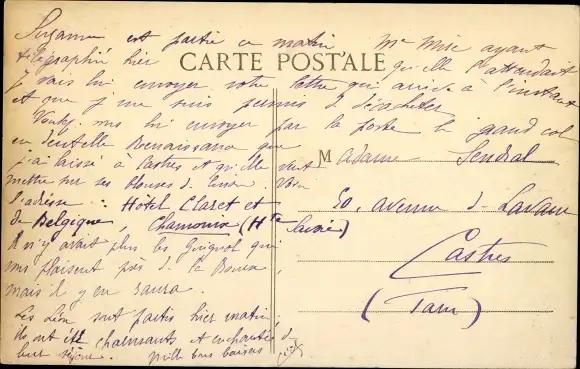 Suzanne est partie ce matin Mme ayant
télégraphié hier qu'elle l'attendait
CARTE POSTALE
Je vais lui envoyer votre lettre qui arrive à l'instant
et que je me suis permis de décacheter
Voulez-vous lui envoyer par la poste le grand col
en dentelle Renaissance que
j'ai laissé à Castres et qu'elle veut
mettre sur ses blouses de linon. Voici
l'adresse : Hotel Claret et
de Belgique, Chamonix (Hte Savoie)
Il n'y avait plus les Guignol qui
vous plaisent près de la Bourse,
mais il y en aura.
Les Léon sont partis hier matin
ils ont été charmants et enchantés de
leur séjour. Mille bons baisers
Madame Sendral
50, avenue de Lavaur
Castres
(Tarn)